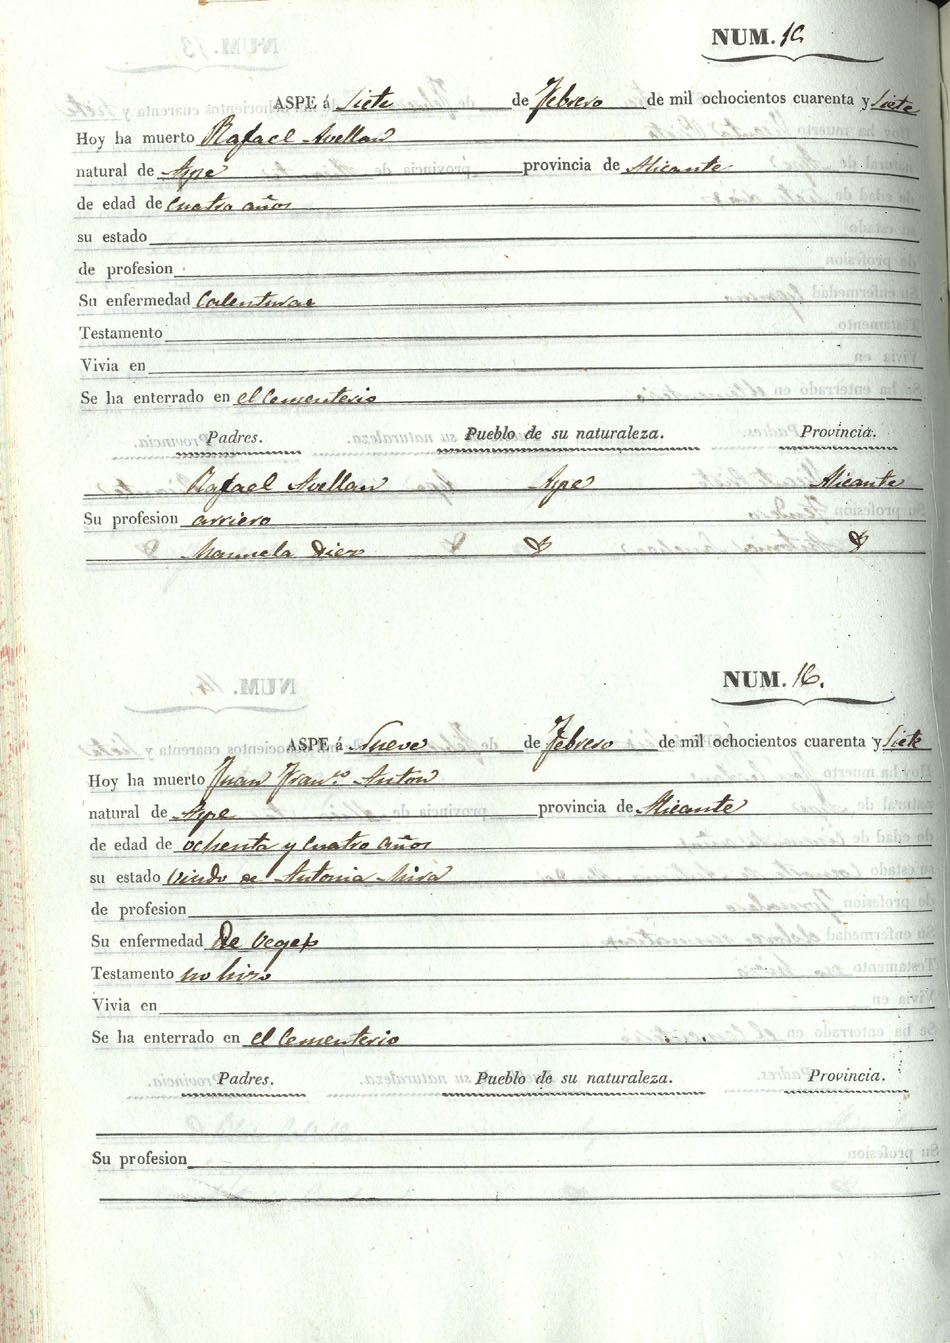 NUM. 15
ASPE á Siete de Febrero de mil ochocientos cuarenta y Siete
Hoy ha muerto Rafael Avellan
natural de Aspe provincia de Alicante
de edad de cuatro años
su estado
de profesion
Su enfermedad Calenturas
Testamento
Vivia en
Se ha enterrado en el Cementerio
Padres. Pueblo de su naturaleza. Provincia.
Rafael Avellan Aspe Alicante
Su profesion arriero
Manuela Diez
NUM. 16.
ASPE á Nueve de Febrero de mil ochocientos cuarenta y Siete
Hoy ha muerto Juan Fran.co Anton
natural de Aspe provincia de Alicante
de edad de ochenta y cuatro años
su estado Viudo de Antonia Mira
de profesion
Su enfermedad De vegez
Testamento no hizo
Vivia en
Se ha enterrado en el Cementerio
Padres. Pueblo de su naturaleza. Provincia.
Su profesion